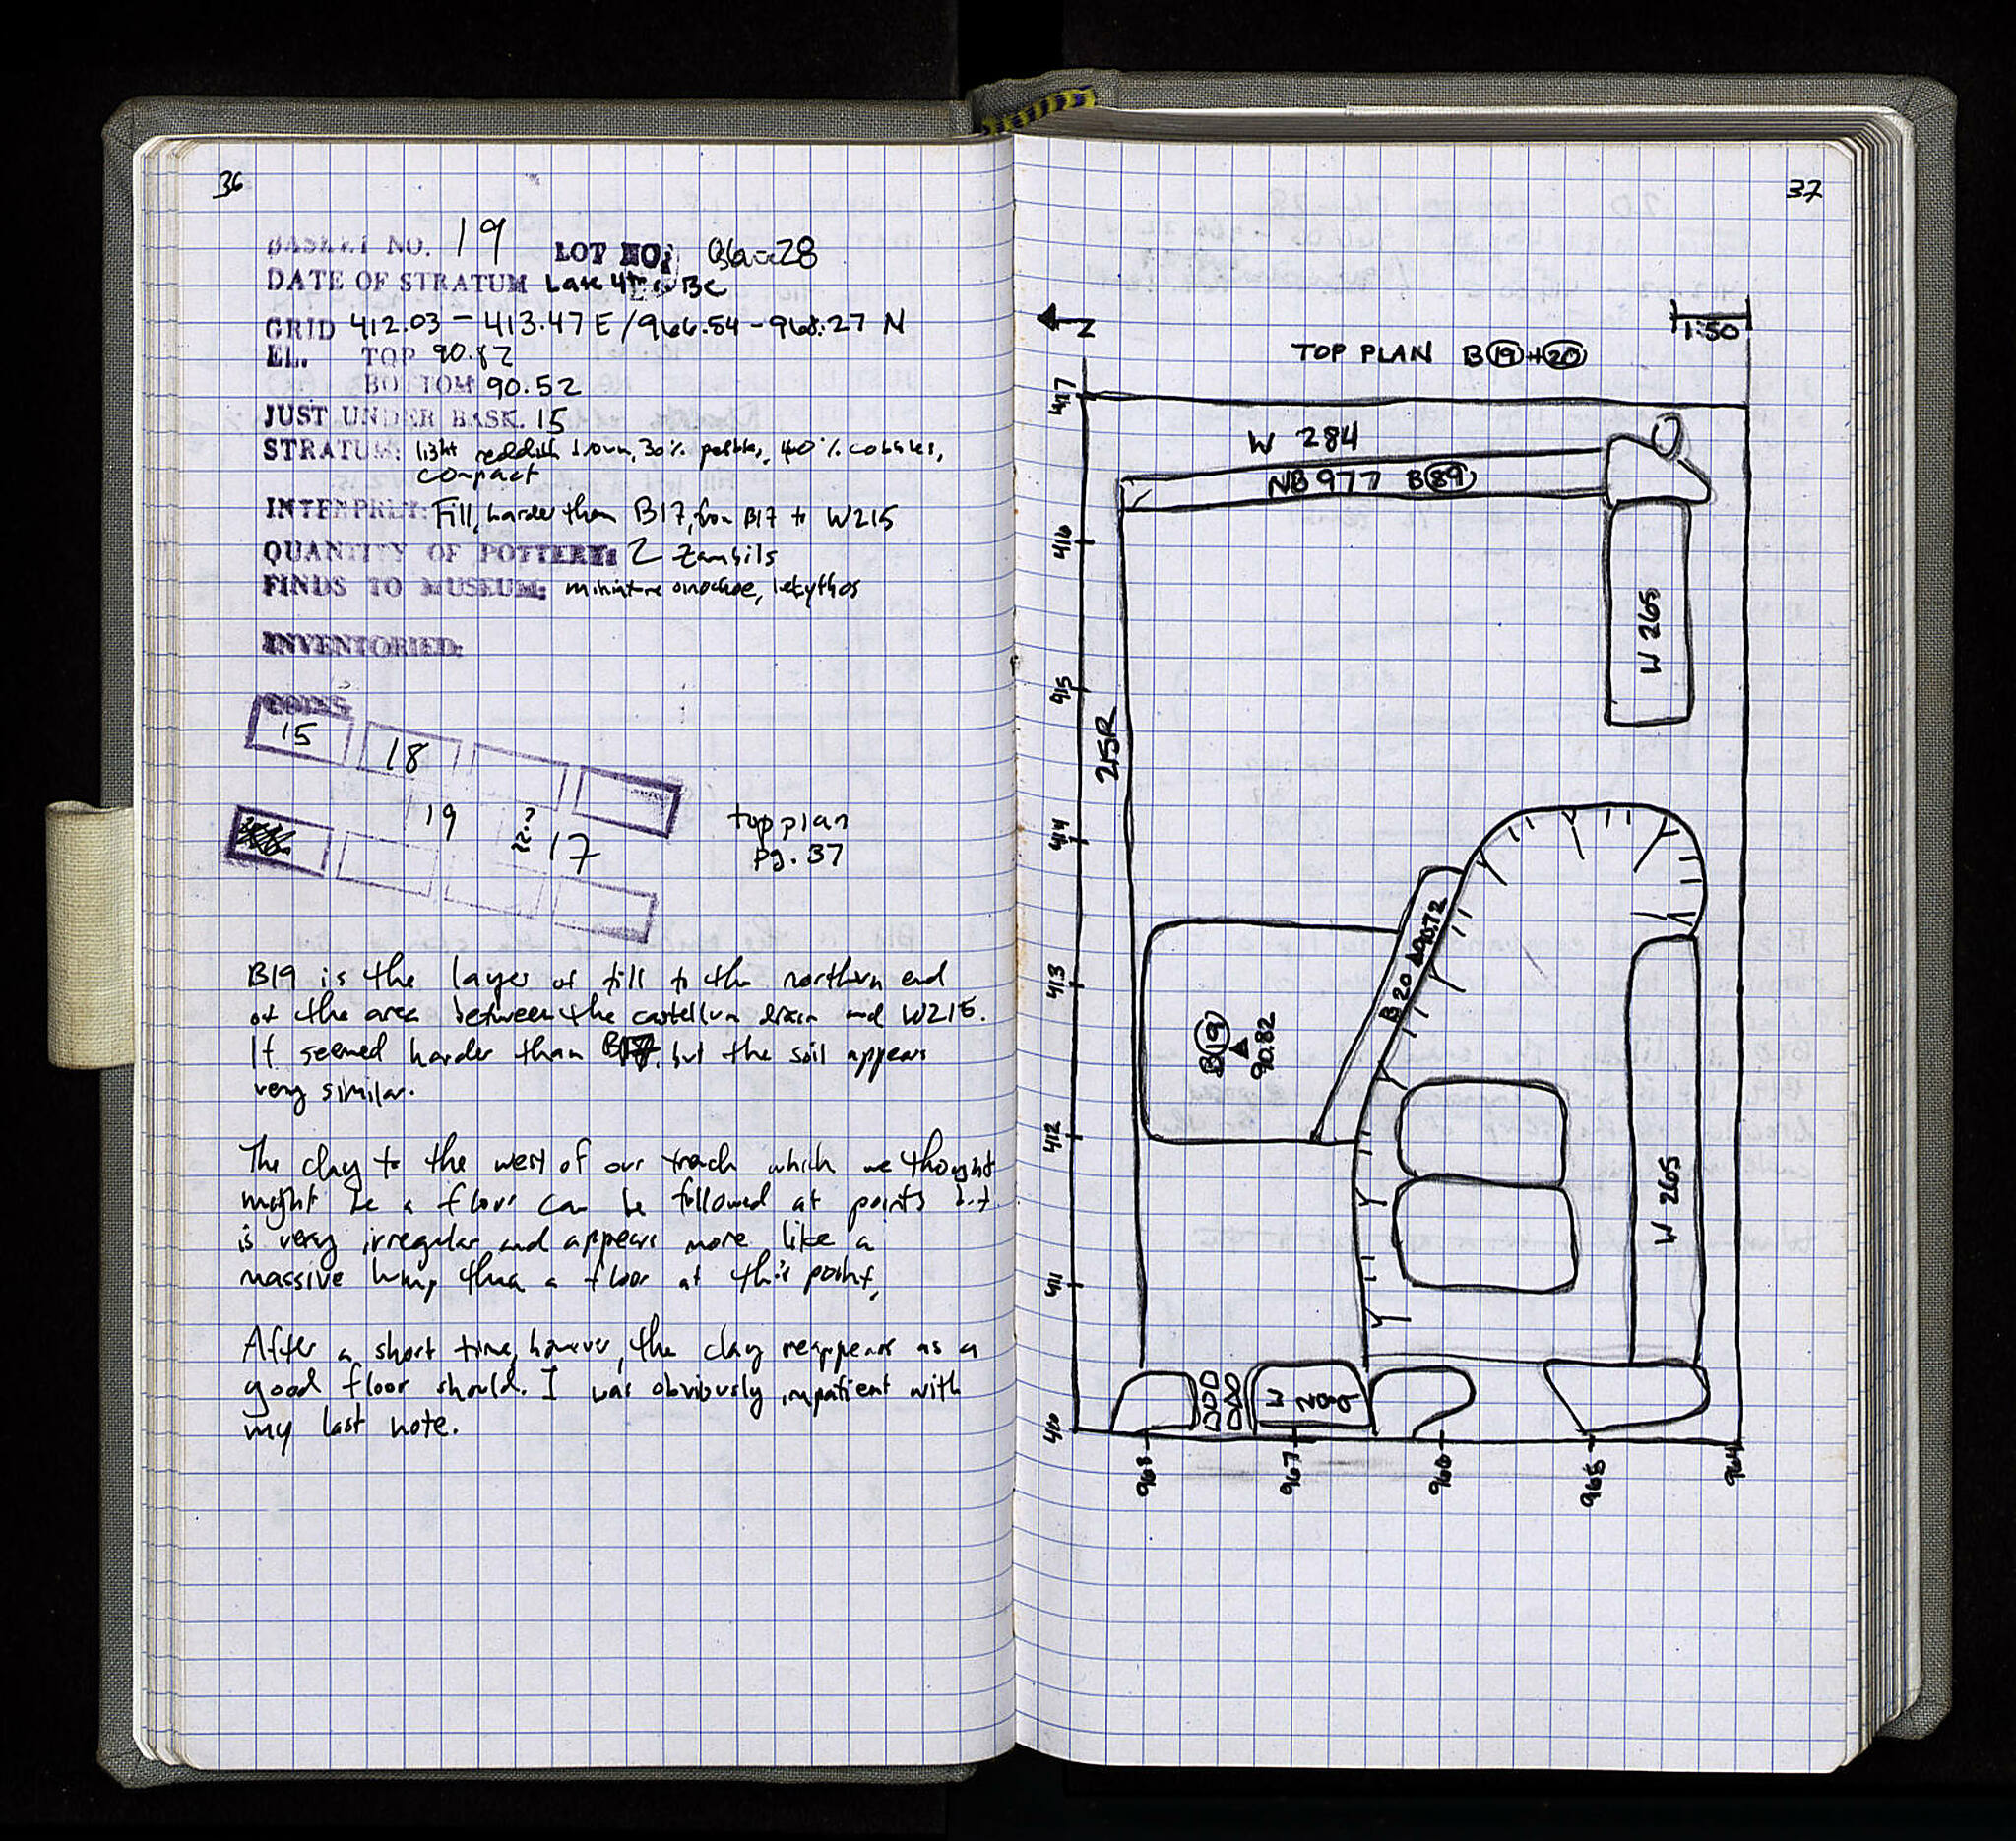 36
BASKET NO. 19 LOT NO:
DATE OF STRATUM Late 4th c BC
GRID 412.03 - 413.47 E / 966.54 - 968.27 N
EL. TOP 90.82
BOTTOM 90.52
JUST UNDER BASK. 15
STRATUM: light reddish brown, 30% pebbles, 40% cobbles,
compact
INTERPRET: Fill, harder than B17, from B17 to W215
QUANTITY OF POTTERY: 2 zambils
FINDS TO MUSEUM: miniature oinochoe, lekythos
INVENTORIED:
COINS
15
18
19
17
top plan
pg. 37
B19 is the layer of fill to the northern end
of the area between the castellum drain and W215.
It seemed harder than B17 but the soil appears
very similar.
The clay to the west of our trench which we thought
might be a floor can be followed at points but
is very irregular and appears more like a
massive lump than a floor at this point.
After a short time, however, the clay reappears as a
good floor should. I was obviously impatient with
my last note.
37
N
1:50
TOP PLAN B19+20
417
W 284
NB977 B89
416
W 265
415
215R
414
B20 90.72
413
B19
90.82
412
W 265
411
W 200
410
968
967
966
965
964